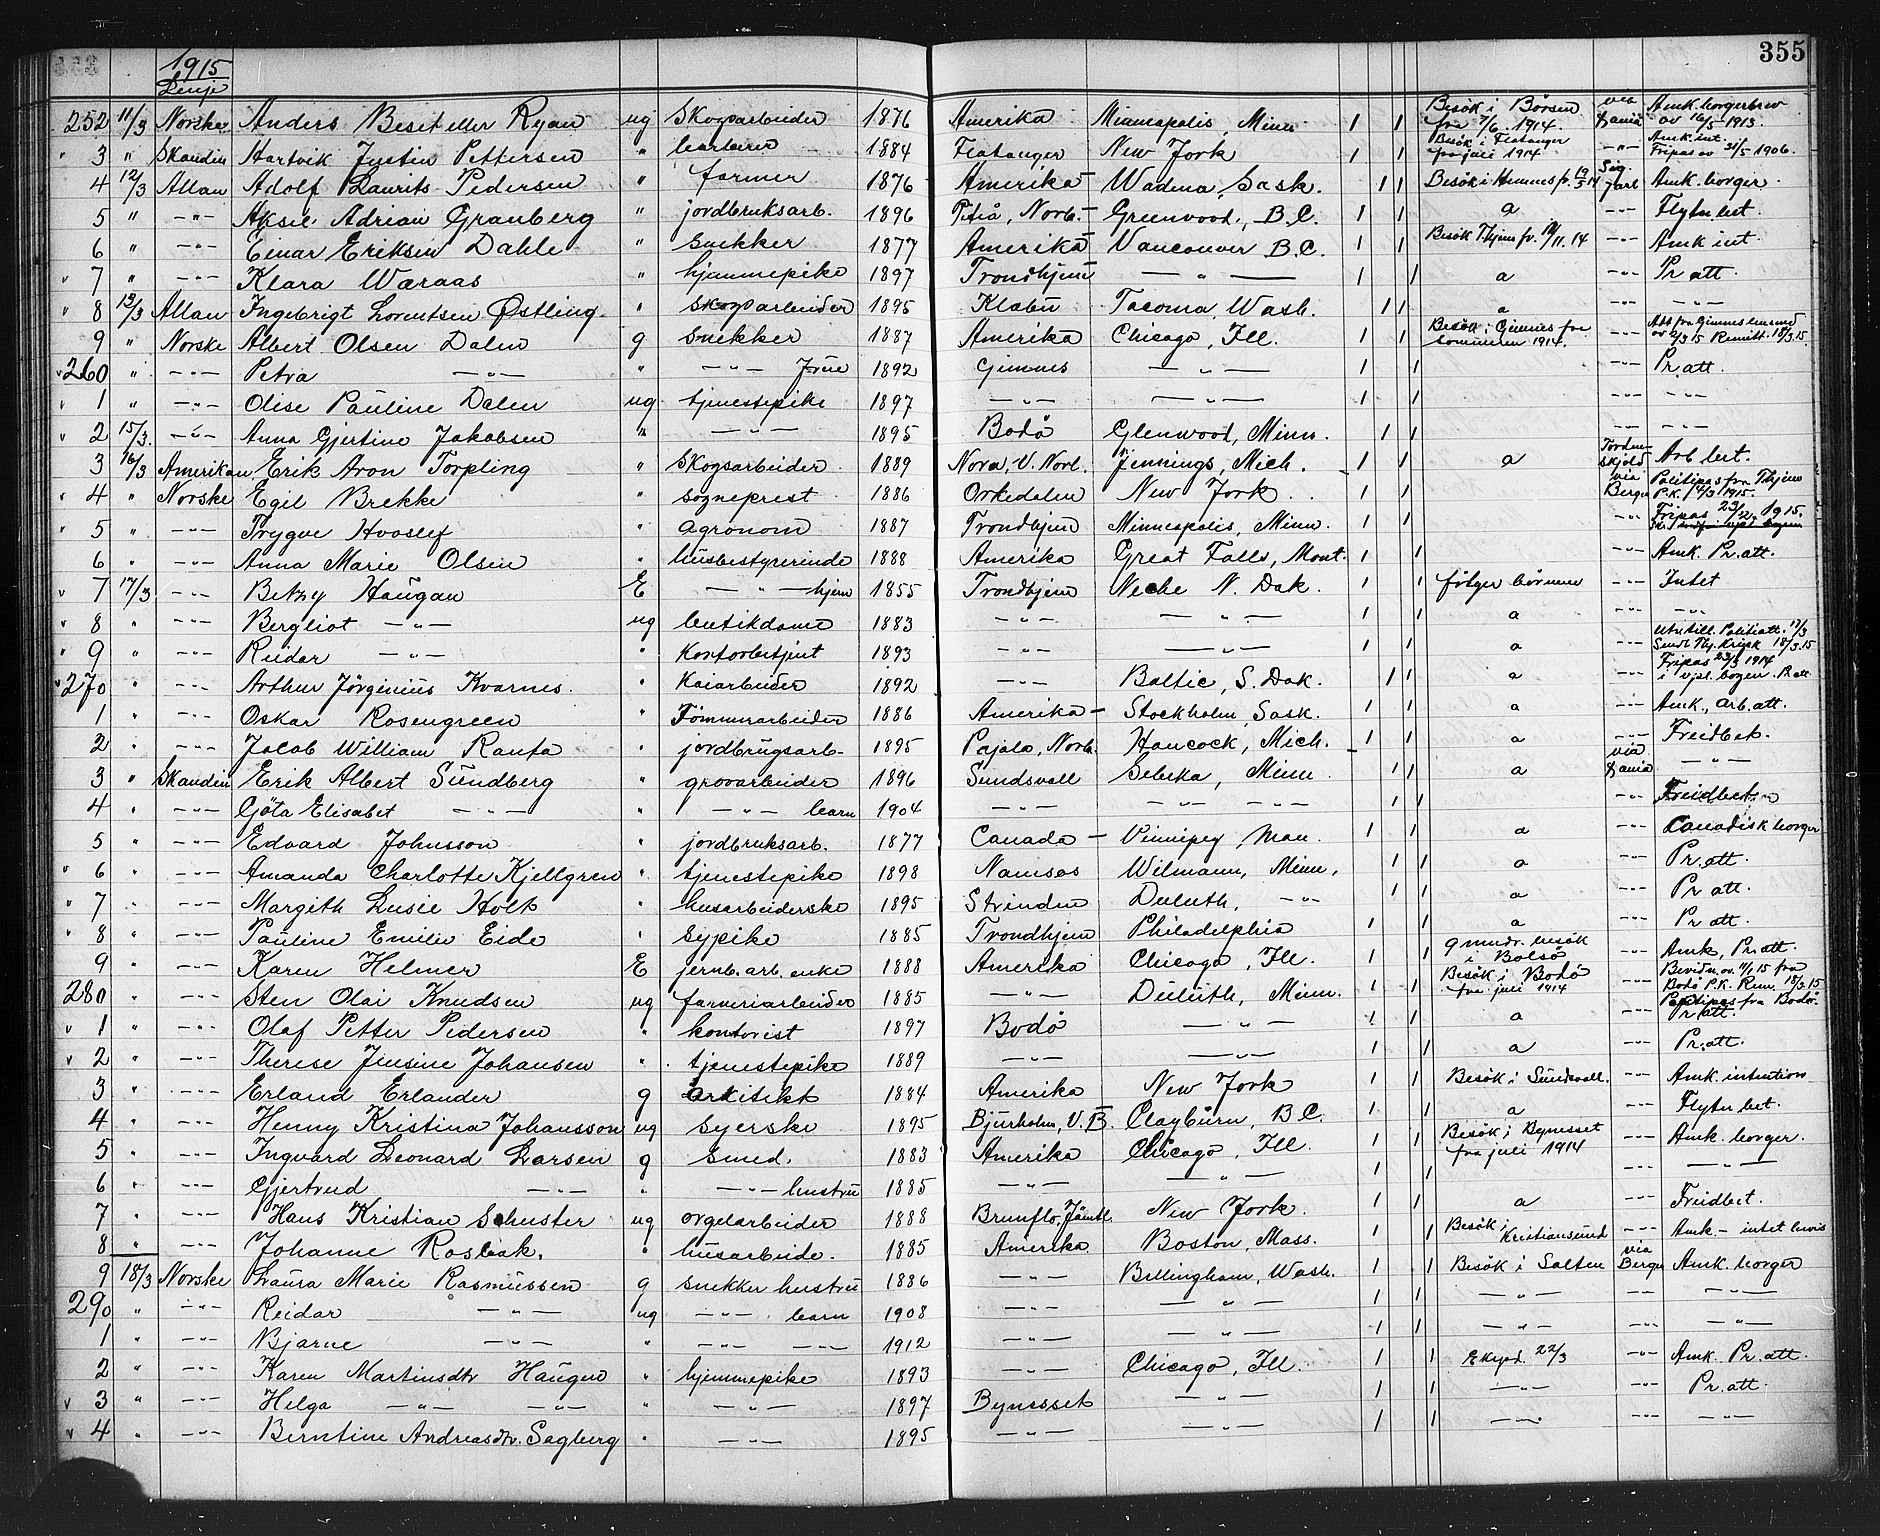 355
1915
Linje
252 11/3 Norske Anders Besit eller Ryan ug Skogsarbeider 1876 Amerika Minneapolis, Minn 1 1 Besök i Börsen fra 7/6 1914. via Hania Amk. borgerbrev av 16/5 1913.
" 3 " Skandin Hartvik Justin Pettersen " barberer 1884 Flatanger New York 1 1 Besök i Flatanger fra juli 1914 -"- Amk. int. Fripas av 31/5 1906.
4 12/3 Allan Adolf Laurits Pedersen " farmer 1876 Amerika Wadena, Sask. 1 1 Besök i Hemnes fr. Sig Jarl Amk. borger.
5 " -"- Aksel Adrian Granberg " jordbruksarb. 1896 Piteå, Norb. Greenwood, B.C. 1 1 a -"- Flyttn. bet.
6 " -"- Einar Eriksen Dahle " snekker 1877 Amerika Vancouver B.C. 1 1 Besök Thjem fr. 14 -"- Amk int.
" 7 " -"- Klara Wæraas " hjemmepike 1897 Trondhjem -"- 1 1 a -"- Pr. att.
" 8 13/3 Allan Ingebrigt Lorentsen Østling " Skogsarbeider 1895 Klæbu Tacoma, Wash. 1 1 a -"- -"-
9 " Norske Albert Olsen Dalen g snekker 1887 Amerika Chicago, Ill. 1 1 Besök i Gimnes fra sommeren 1914. -"- Att fra Gimnes lensmd av 9/3 15 Remitt. 18/3.15.
" 260 " -"- Petra -"- " -"- frue 1892 Gimnes -"- 1 1 -"- Pr. att.
" 1 " -"- Olise Pauline Dalen ug tjenestepike 1897 -"- -"- 1 1 -"- -"-
" 2 15/3. -"- Anna Gjertine Jakobsen " -"- 1895 Bodö Glenwood, Minn. 1 1 -"- -"-
3 16/3 Amerikan Erik Aron Torpling " Skogsarbeider 1889 Nora, V. Norl. Jennings, Mich. 1 1 a Tordenskjold Arb. bet.
" 4 " Norske Egil Brekke " sogneprest 1886 Orkedalen New York 1 1 via Bergen Politipas fra Thjem P.K. 14/3 1915.
" 5 " -"- Trygve Hvoslef " agronom 1887 Trondhjem Minneapolis, Minn. 1 1 -"- Fripas 23/2 1915.
6 " -"- Anna Marie Olsen " husbestyrerinde 1888 Amerika Great Falls, Mont. 1 1 -"- Amk. Pr. att.
" 7 17/3 -"- Betzy Haugan E -"- hjem 1855 Trondhjem Neche N. Dak. 1 1 følger börnene -"- Intet
" 8 " -"- Bergliot -"- ug butikdame 1883 -"- -"- 1 1 a -"- -"-
" 9 " -"- Reidar -"- " Kontorbetjent 1893 -"- -"- 1 1 a -"- Politiatt. 17/3 18/3.15
" 270 " -"- Arthur Jörginius Kvarnes. " Kaiarbeider 1892 -"- Baltic, S. Dak. 1 1 a -"- Fripas 23/3 1914 i vpl. bogen. Pr. att
1 " -"- Oskar Rosengreen " Tömmerarbeider 1886 Amerika Stockholm, Sask. 1 1 a -"- Amk., arb. att.
2 " -"- Jacob William Ranta " jordbrugsarb. 1895 Pajala, Norb. Hancock, Mich. 1 1 a -"- Freidbet.
3 " Skandin Erik Albert Sundberg " grovarbeider 1896 Sundsvall Sebeka, Minn 1 1 a via Hania -"-
4 " -"- Göta Elisabet -"- " -"- barn 1904 -"- -"- -"- 1 1 -"- Freidbet.
5 " -"- Edvard Johnsson " jordbruksarb. 1877 Canada Vinnipeg Man. 1 1 a -"- Canadisk borger
" 6 " -"- Amanda Charlotte Kjellgren " tjenestepike 1898 Namsos Wilmann, Minn, 1 1 a -"- Pr. att.
" 7 " -"- Margith Lusie Holt " husarbeiderske 1895 Strinden Duluth, -"- 1 1 a -"- Pr att.
" 8 " -"- Pauline Emilie Eide " Sypike 1885 Trondhjem Philadelphia 1 1 a -"- Pr att.
9 " -"- Karen Helmer E jernb. arb. enke 1888 Amerika Chicago, Ill. 1 1 9 mndr. besök i Bolsö -"- Amk, Pr. att.
280 " -"- Sten Olai Knudsen ug farveriarbeider 1885 -"- Duluth, Minn. 1 1 Besök i Bodö fra juli 1914 -"- Bevidn. av 11/1 15 fra Bodö P.K. Rem. 18/3.15
" 1 " -"- Olaf Petter Pedersen " kontorist 1897 Bodö -"- 1 1 a -"- Politipas fra Bodö. Pr att.
" 2 " -"- Therese Jensine Johansen " tjenestepike 1889 -"- -"- 1 1 a -"- Pr. att.
3 " -"- Erland Erlander g arkitekt 1884 Amerika New York 1 1 Besök i Sundsvall. -"- Amk. intention
4 " -"- Henny Kristina Johansson ug syerske 1895 Bjurholm, V. B. Clayburn, B.C. 1 1 a -"- Flyttn bet.
5 " -"- Ingvard Leonard Larsen g Smed. 1883 Amerika Chicago, Ill. 1 1 Besök i Bynesset fra juli 1914 -"- Amk. borger.
6 " -"- Gjertrud -"- " -"- hustru 1885 -"- -"- 1 1 -"- -"-
7 " -"- Hans Kristian Schuster ug orgelarbeider 1888 Brunflo, Jämtl. New York. 1 1 a -"- Freidbet.
8 " -"- Johanne Rosbak. " husarbeide. 1885 Amerika Boston, Mass. 1 1 Besök i Kristiansund -"- Amk - intet bevis
9 18/3 Norske Laura Marie Rasmussen g snekker hustru 1886 -"- Bellingham, Wash. 1 1 Besök i Salten via Bergen Amk. borger
290 " -"- Reidar -"- ug -"- barn 1908 -"- -"- 1 1 -"- -"- -"-
1 " -"- Bjarne -"- " -"- -"- 1912 -"- -"- 1 1 -"- -"- -"-
2 " -"- Karen Martinsdtr Haugen " hjemmepike 1893 -"- Chicago, Ill. 1 1 Eksped. 22/3 -"- Amk. Pr. att.
v 3 " -"- Helga -"- -"- " -"- 1897 Bynesset -"- 1 1 -"- -"- Pr. att.
v 4 " -"- Berntine Andreasdtr. Sagberg " -"- 1895 -"- -"- 1 1 -"- -"- -"-